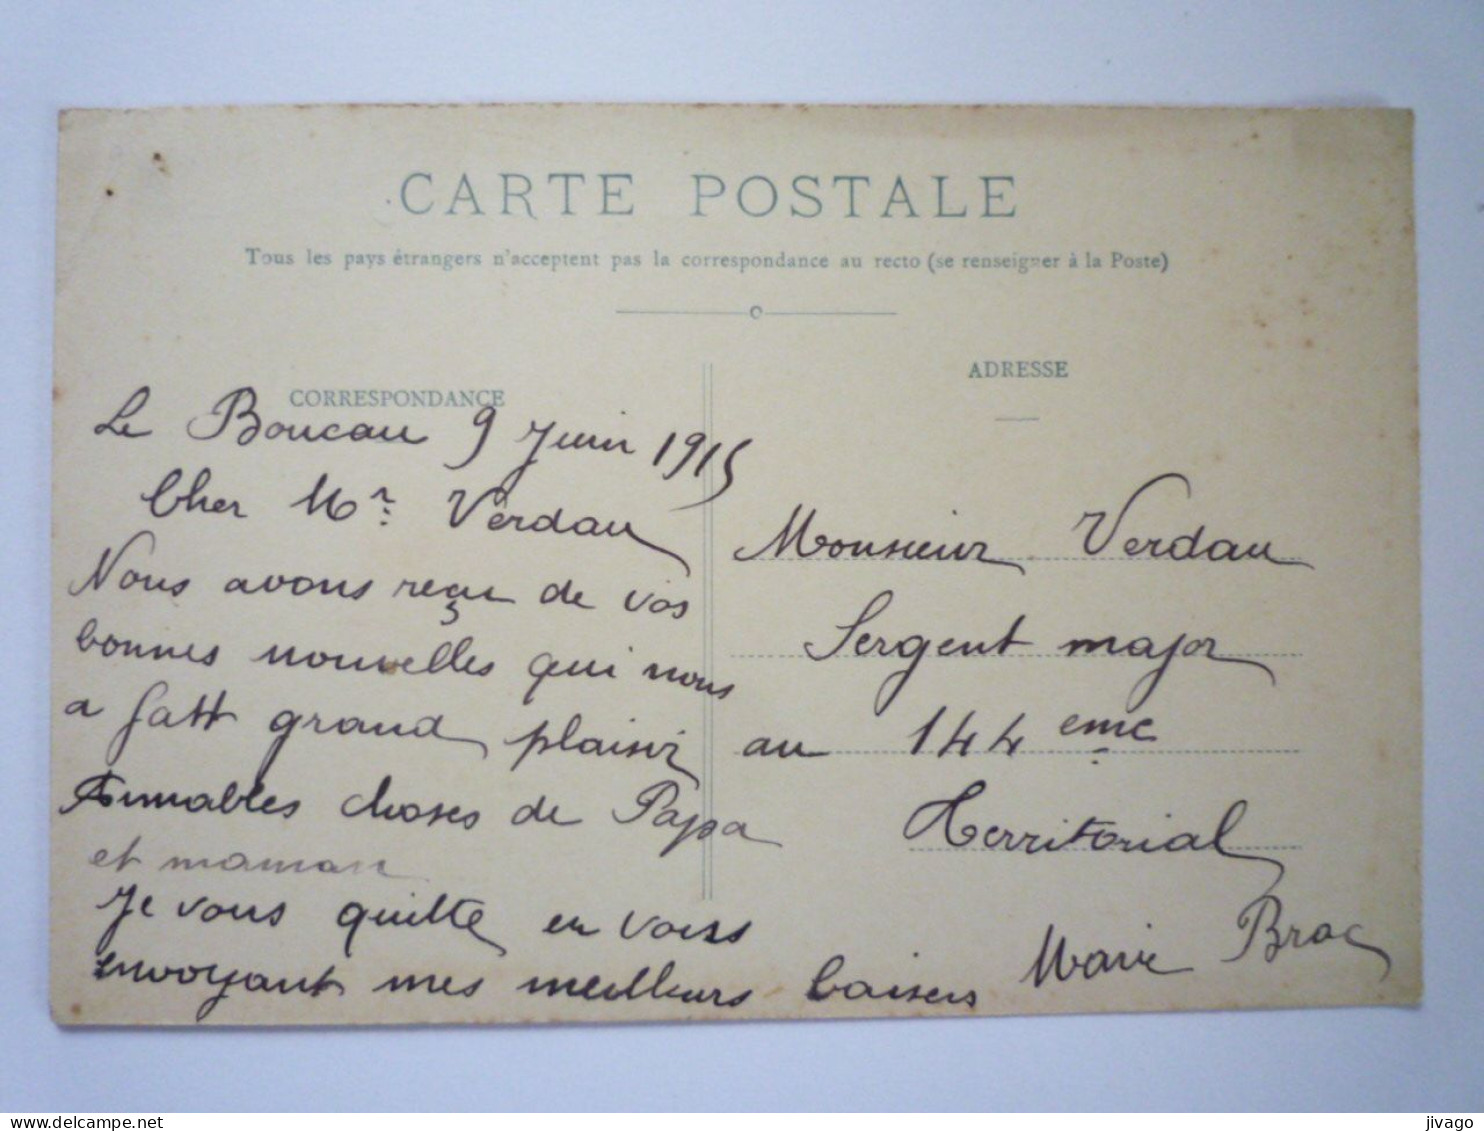 CARTE POSTALE
Tous les pays étrangers n'acceptent pas la correspondance au recto (se renseigner à la Poste)
CORRESPONDANCE
Le Boucau 9 Juin 1915
Cher Mr Verdau
Nous avons reçu de vos
bonnes nouvelles qui nous
a fait grand plaisir
Aimables choses de Papa
et maman
Je vous quitte en vous
envoyant mes meilleurs baisers Marie Brac
ADRESSE
Monsieur Verdau
Sergent major
au 144eme
Territorial
www.delcampe.net
jivago